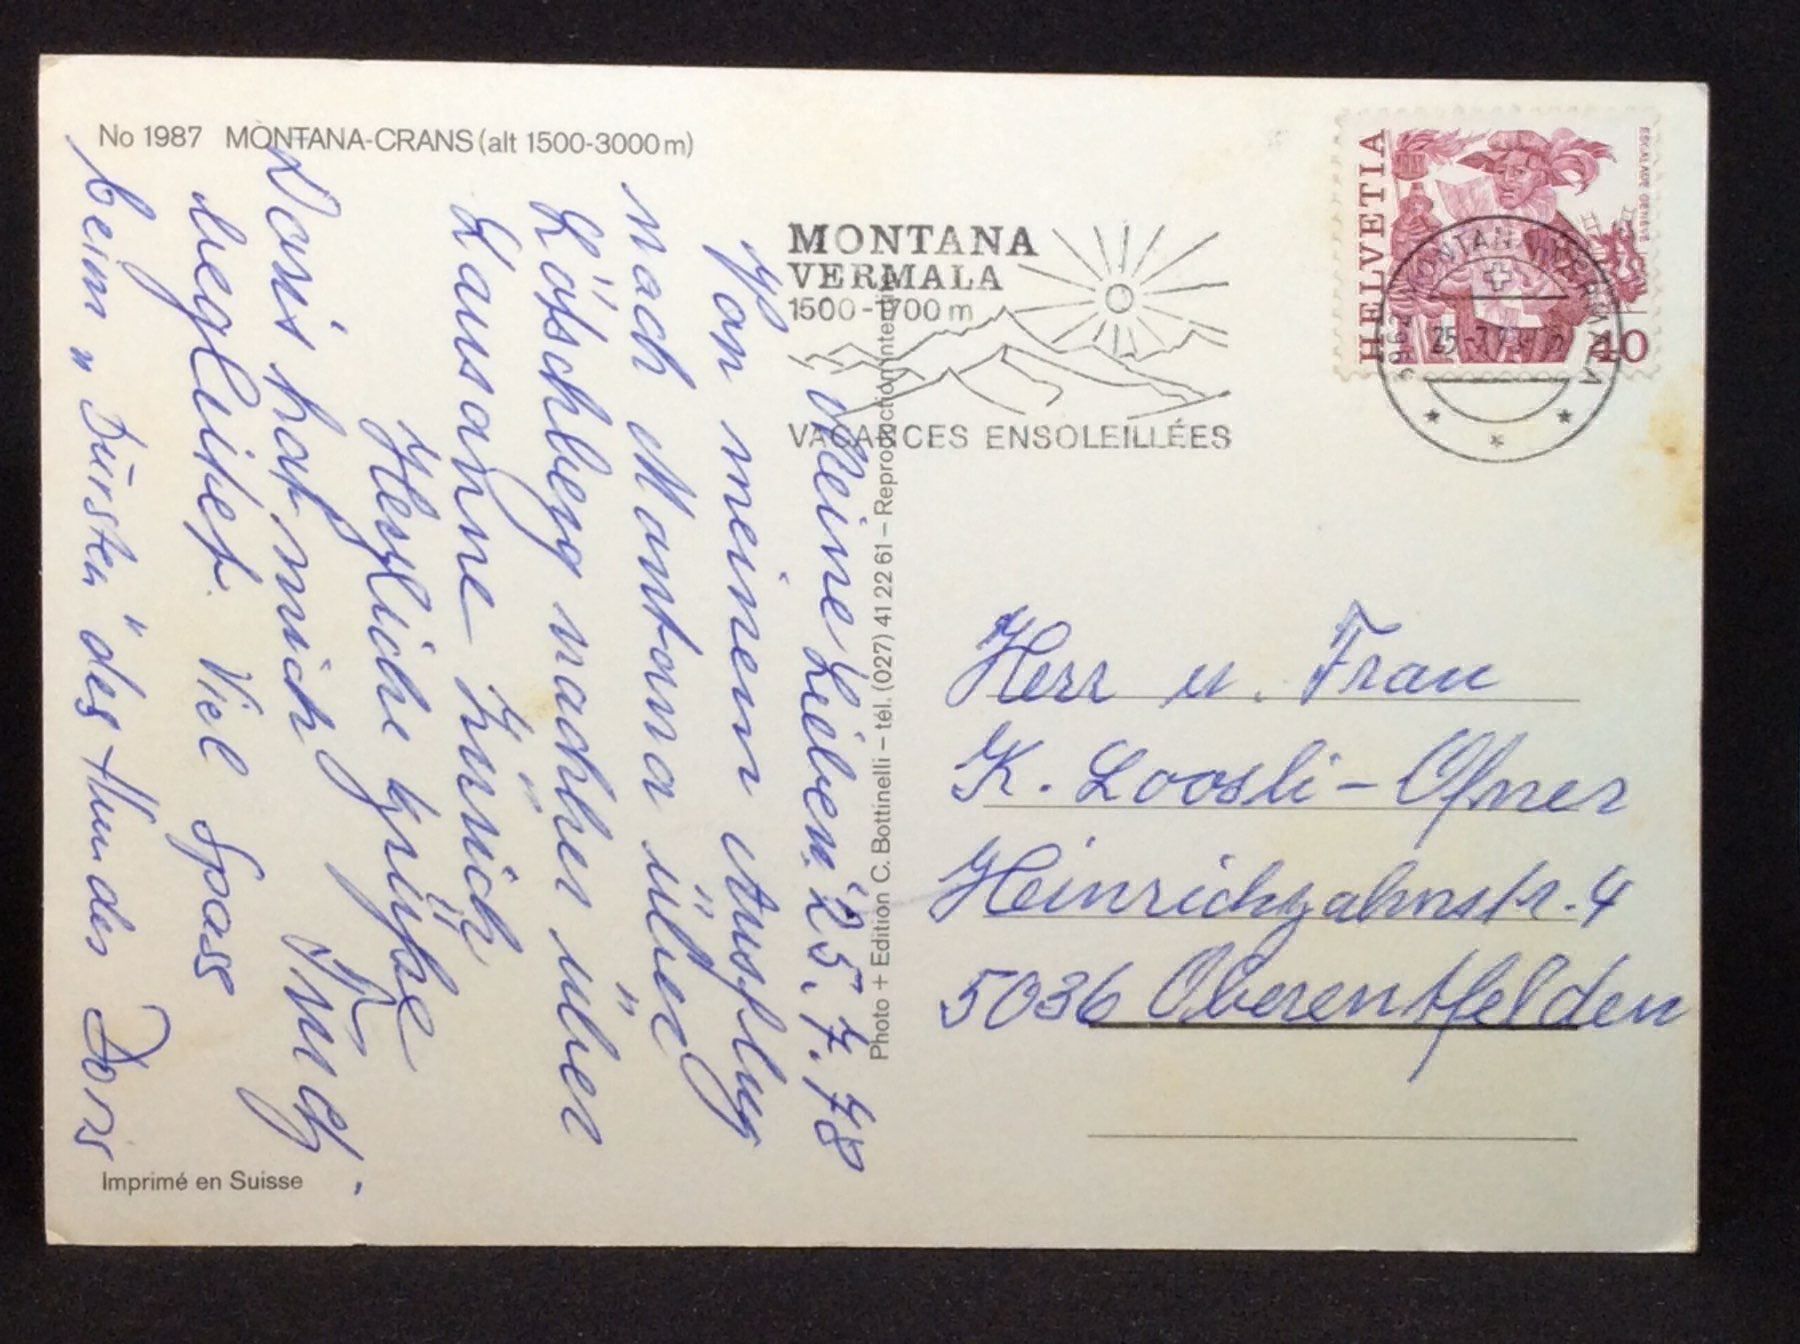 No 1987 MONTANA-CRANS (alt 1500-3000 m)
MONTANA
VERMALA
1500-1700 m
VACANCES ENSOLEILLÉES
HELVETIA
ESCALADE GENÈVE
40
Meine Lieben, 25.7.78
Von meinem Ausflug
nach Montana über
Lötschberg nachher über
Lausanne Zürich
Herzliche Grüsse
Doris hat mich
begleitet. Viel Spass
beim "Bürsten" des Hundes Doris
Photo + Edition C. Bottinelli – tél. (027) 41 22 61 – Reproduction interdite
Herr u. Frau
K. Loosli-Ofner
Heinrichjahnstr. 4
5036 Oberentfelden
Imprimé en Suisse